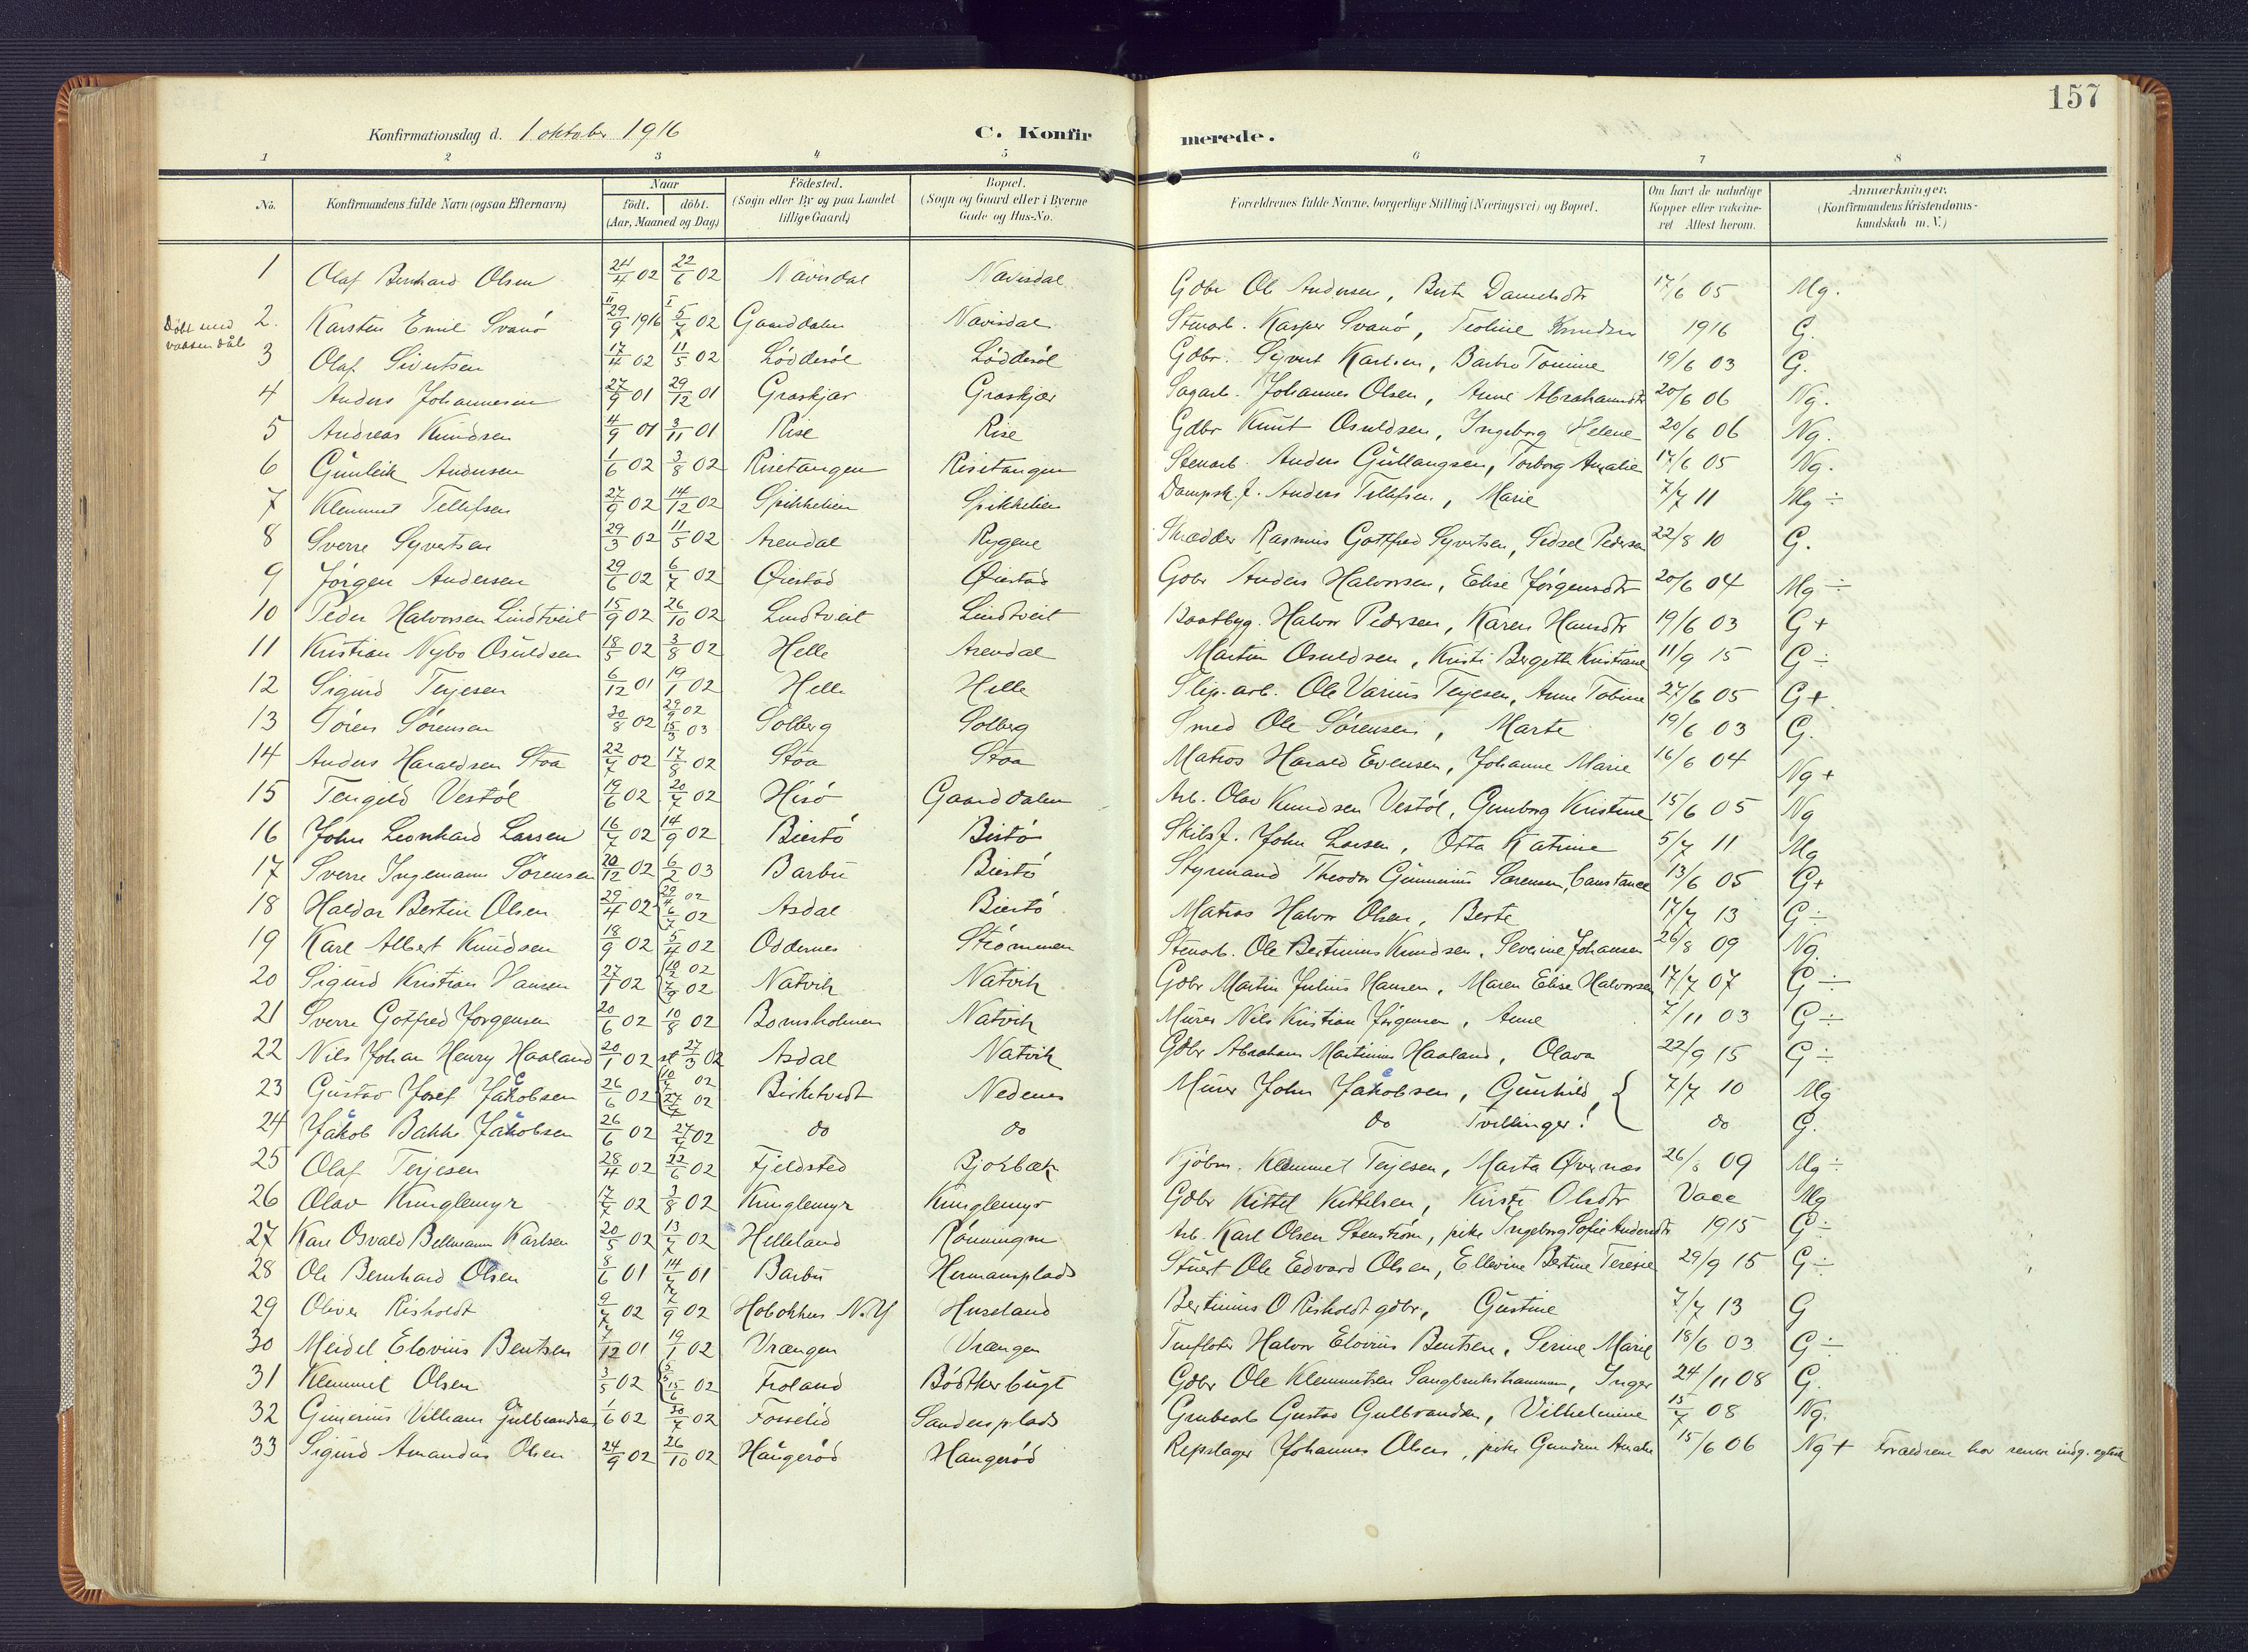 157
Konfirmationsdag d. 1 oktober 1916 C. Konfirmerede.
1 2 3 4 5 6 7 8
No. Konfirmandens fulde Navn (ogsaa Efternavn) Naar födt. döbt. (Aar, Maaned og Dag) Födested. (Sogn eller By og paa Landet tillige Gaard) Bopæl. (Sogn og Gaard eller i Byerne Gade og Hus-No. Forældrenes fulde Navne, borgerlige Stilling (Næringsvei) og Bopæl. Om havt de naturlige Kopper eller vakcineret Attest herom. Anmærkninger. (Konfirmandens Kristendomskundskab m. V.)
1 Olaf Bernhard Olsen 24/4 02 22/6 02 Navisdal Navisdal Gdbr Ole Andersen, Berte Danielsdtr 17/6 05 Mg.
Döbt med
2. Karsten Emil Svanö 29/9 1916 5/7 02 Gaarddalen Navisdal Stenarb. Kasper Svanö, Teoline Knudsen 1916 G.
3 Olaf Sivertsen 17/4 02 11/5 02 Löddesöl Löddesöl Gdbr. Syvert Karlsen, Barbro Tomine 19/6 03 G.
4 Anders Johannesen 27/9 01 29/12 01 Graskjær Graskjær Sagarb. Johannes Olsen, Anne Abrahamsdtr 20/6 06 Ng.
5 Andreas Knudsen 4/9 01 3/11 01 Rise Rise Gdbr Knut Osuldsen, Ingeborg Helene 20/6 06 Ng.
6 Gunleik Andersen 1/6 02 3/8 02 Risetangen Risetangen Stenarb. Anders Gullangsen, Torborg Amalie 17/6 05 Ng.
7 Klemmet Tellefsen 27/9 02 14/12 02 Spikkelien Spikkelien Dampsk.f. Anders Tellefsen, Marie 7/7 11 Mg ÷
8 Sverre Syvertsen 29/3 02 11/5 02 Arendal Rygene Skrædder Rasmus Gottfred Syvertsen, Sidsel Pedersen 22/8 10 G.
9 Jörgen Andersen 29/6 02 6/7 02 Øiestad Øiestad Gdbr Anders Halvorsen, Elise Jörgensdtr 20/6 04 Mg ÷
10 Peder Halvorsen Lindtveit 15/9 02 26/10 02 Lindtveit Lindtveit Baatbyg. Halvor Pedersen, Karen Hansdtr 19/6 03 G+
11 Kristian Nybo Osuldsen 18/5 02 3/8 02 Helle Arendal Martin Osuldsen, Kirsti Bergitte Kristiane 11/9 15 G ÷
12 Sigurd Terjesen 6/12 01 19/1 02 Helle Helle Slip. arb. Ole Varius Terjesen, Anne Tobine 27/6 05 G+
13 Sören Sörensen 30/8 02 29/9 02 15/3 03 Solberg Solberg Smed Ole Sörensen, Marte 19/6 03 G.
14 Anders Haraldsen Stoa 22/7 02 17/8 02 Stoa Stoa Matros Harald Evensen, Johanne Marie 16/6 04 Ng+
15 Tengeld Vestöl 19/6 02 20/7 02 Hisö Gaarddalen Arb. Olav Knudsen Vestöl, Gunborg Kristine 15/6 05 Ng
16 John Leonhard Larsen 16/7 02 14/9 02 Biestö Bistö Skibsf. John Larsen, Otta Katrine 5/7 11 Mg
17 Sverre Ingemann Sörensen 20/12 02 6/2 03 Barbu Biestö Styrmand Theodor Gunnerius Sörensen, Constance 13/6 05 G+
18 Haldor Bertin Olsen 29/4 02 29/4 02 6/7 02 Asdal Biestö Matros Halvor Olsen, Berte 17/7 13 G ÷
19 Karl Albert Knudsen 18/9 02 5/4 02 Oddernes Strömmen Stenarb. Ole Bertinius Knudsen, Severine Johansen 26/8 09 Ng.
20 Sigurd Kristian Hansen 27/1 02 10/2 02 7/9 02 Natvik Natvik Gdbr Martin Julius Hansen, Maren Elise Halvorsen 17/7 07 G ÷
21 Sverre Gotfred Jorgensen 20/6 02 10/8 02 Bomsholmen Natvik Murer Nils Kristian Jörgensen, Anne 7/11 03 G ÷
22 Nils Johan Henry Haaland 20/1 02 st 27/3 02 Asdal Natvik Gdbr Abraham Martinius Haaland, Olava 22/9 15 G ÷
23 Gustav Josef Jakobsen 26/6 02 10/7 02 27/7 02 Birketvedt Nedenes Murer John Jakobsen, Gunhild 7/7 10 Mg
24 Jakob Bakke Jakobsen 26/6 02 27/7 02 do do do Tvillinger! do G.
25 Olaf Terjesen 28/4 02 22/6 02 Fjeldsted Bjorbæk Kjöbm. Klemmet Terjesen, Marta Øvernæs 26/8 09 Mg ÷
26 Olav Kringlemyr 17/7 02 3/8 02 Kringlemyr Kringlemyr Gdbr Kittel Kittelsen, Kirsti Olsdtr Vacc Mg
27 Karl Osvald Bellmann Karlsen 20/5 02 13/7 02 Helleland Rönningen Arb. Karl Olsen Stenström, pike Ingeborg Sofie Andersdtr 1915 G ÷
28 Ole Bernhard Olsen 8/6 01 14/7 01 Barbu Hermansplads Stuert Ole Edvard Olsen, Ellevine Bertine Teresie 29/9 15 G ÷
29 Oliver Risholdt 9/7 02 7/9 02 Hobokken N.Y Huseland Bertinius O Risholdt gdbr, Gustine 7/7 13 G
30 Meidel Elovius Bentsen 7/12 01 19/1 02 Vrængen Vrængen Tømfløter Halvor Elovius Bentsen, Serine Marie 18/6 03 G ÷
31 Klemmet Olsen 3/5 02 15/6 02 Froland Bödtkerbugt Gdbr Ole Klemmetsen, Inger 24/11 08 G.
32 Gunerius Vilham Gulbrandsen 1/6 02 30/7 02 Fosselid Sandersplads Grubearb Gustav Gulbrandsen, Vilhelmine 15/7 08 Ng.
33 Sigurd Amandus Olsen 24/9 02 26/10 02 Haugeröd Haugeröd Repslager Johannes Olsen, pike Gundine Amalie 15/6 06 Ng + Forældrene har senere indg. egtesk